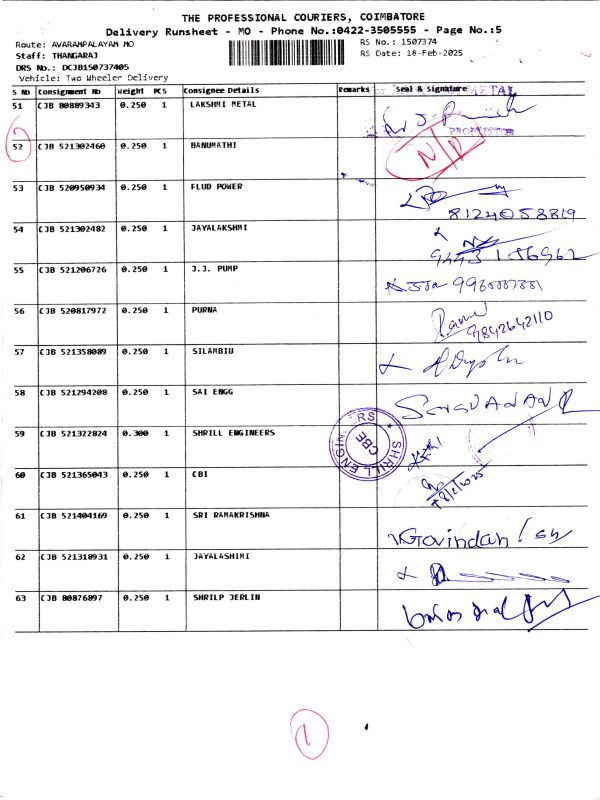 THE PROFESSIONAL COURIERS, COIMBATORE
Delivery Runsheet - MO - Phone No.:0422-3505555 - Page No.:5
Route: AVARAMPALAYAM MO
RS No.: 1507374
Staff: THANGARAJ
RS Date: 18-Feb-2025
DRS No.: DCJB150737405
Vehicle: Two Wheeler Delivery
S No Consignment No Weight PCS Consignee Details Remarks Seal & Signature
METAL
51 CJB 80889343 0.250 1 LAKSHMI METAL
PROPRIETOR
52 CJB 521302460 0.250 1 BANUMATHI N/D
53 CJB 520950934 0.250 1 FLUD POWER
8124058819
54 CJB 521302482 0.250 1 JAYALAKSHMI
9443186962
55 CJB 521206726 0.250 1 J.J. PUMP
56 CJB 520817972 0.250 1 PURNA
9842642110
57 CJB 521358089 0.250 1 SILAMBIU
58 CJB 521294208 0.250 1 SAI ENGG
SARAVANAN
59 CJB 521322824 0.300 1 SHRILL ENGINEERS
SHRILL ENGINEERS
CBE
60 CJB 521365043 0.250 1 CBI
18/2/2025
61 CJB 521404169 0.250 1 SRI RAMAKRISHNA
Govindan
62 CJB 521318931 0.250 1 JAYALASHIMI
63 CJB 80876897 0.250 1 SHRILP JERLIN
1